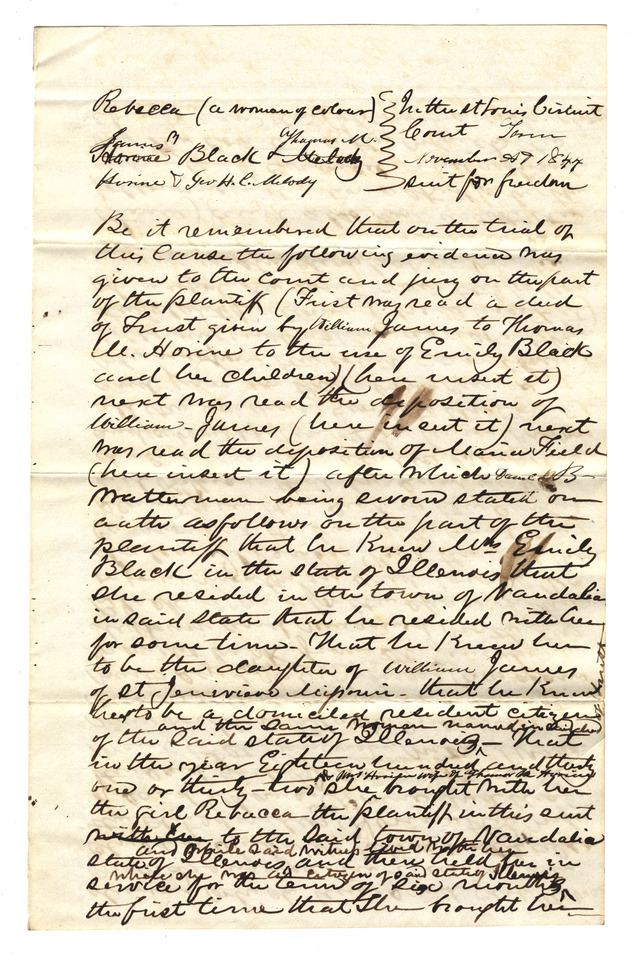 Rebecca (a woman of colour) In the St Louis Circuit
James B Thomas M. Court Term
Horine Black & Melody November AD 1844
Horine & Geo H. C. Melody suit for freedom
Be it remembered that on the trial of
this Cause the following evidence was
given to the court and jury on the part
of the plantiff (First was read a deed
of Trust given by William James to Thomas
M. Horine to the use of Emily Black
and her children) (here insert it)
next was read the deposition of
William James (here insert it) next
was read the deposition of Maria Field
(here insert it) after which B
Watterman being sworn stated on
oath as follows on the part of the
plantiff that he Knew Mrs Emily
Black in the state of Illenois that
she resided in the town of Vandalia
in said state that he resided with her
for some time. That he Knew her
to be the daughter of William James
of St Jenivieve Missouri - that he Knew
her to be a domiciled resident citizen
and the same woman named in
of the said state of Illenois - That
in the year Eighteen hundred and thirty
or Mrs Horine wife of Thomas M Horine
one or thirty-two she brought with her
the girl Rebecca the plantiff in this suit
with her to the said town of Vandalia
and while said witness lived with her
state of Illenois and there held her in
where she was a citizen of said state of Illenois
service for the term of six months
the first time that she brought her